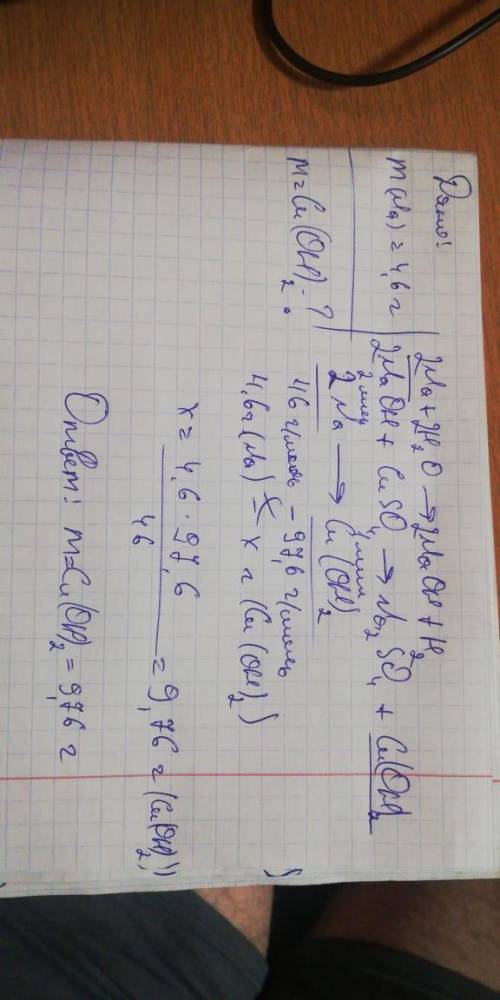 Дано:
m(Na) = 4,6 г
m = Cu(OH)₂ - ?
2Na + 2H₂O → 2NaOH + H₂
2NaOH + CuSO₄ → Na₂SO₄ + Cu(OH)₂
2Na → Cu(OH)₂
46 г/моль - 97,6 г/моль
4,6г (Na) - x г (Cu(OH)₂)
x = 4,6 · 97,6
46
= 9,76 г (Cu(OH)₂)
Ответ: m = Cu(OH)₂ = 9,76 г